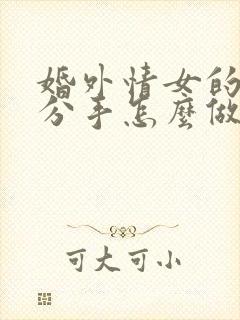 婚外情女的
分手怎麼做
可大可小